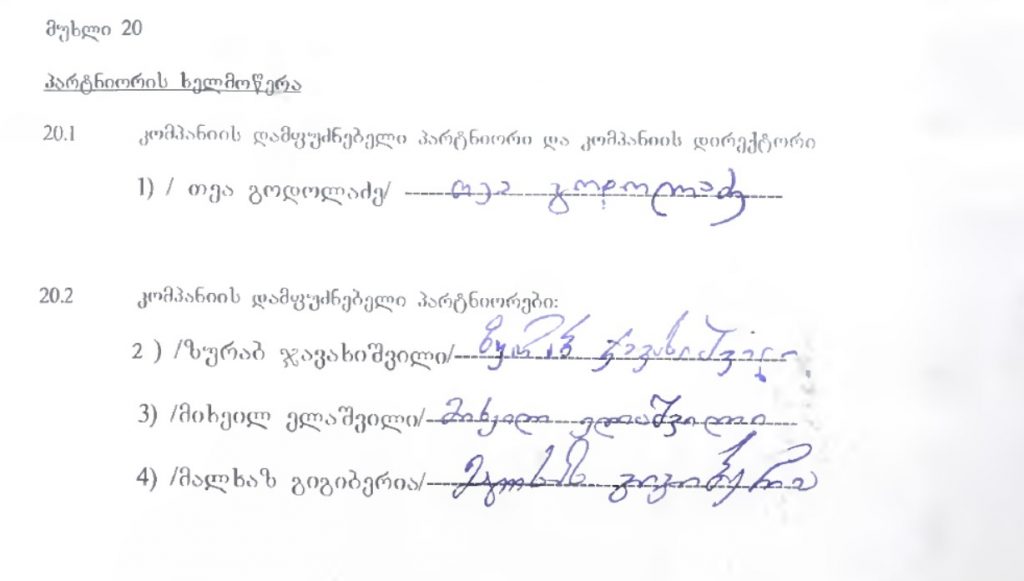 მუხლი 20
პარტნიორის ხელმოწერა
20.1 კომპანიის დამფუძნებელი პარტნიორი და კომპანიის დირექტორი
1) / თეა გოდოლაძე/ თეა გოდოლაძე
20.2 კომპანიის დამფუძნებელი პარტნიორები:
2 ) /ზურაბ ჯავახიშვილი/ ზურაბ ჯავახიშვილი
3) /მიხეილ ელაშვილი/ მიხეილ ელაშვილი
4) /მალხაზ გიგიბერია/ მალხაზ გიგიბერია